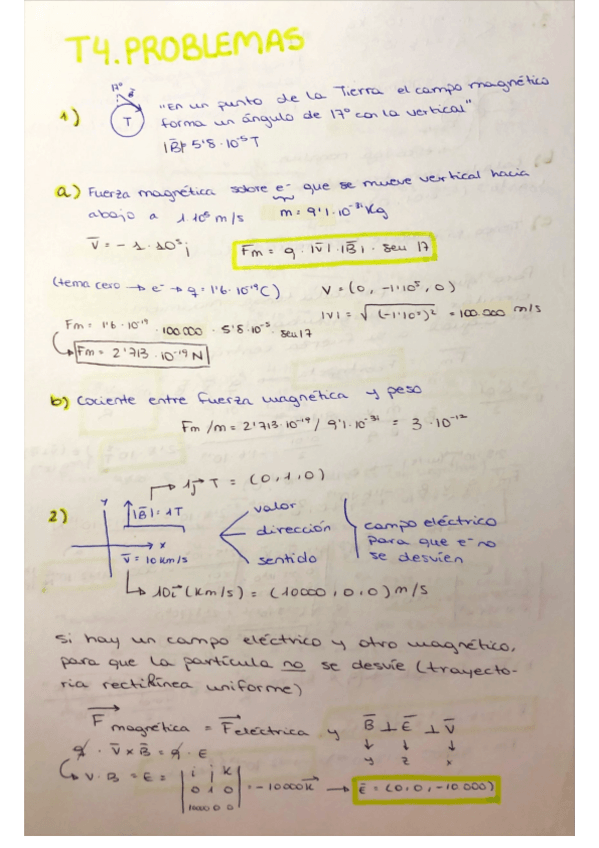 T4. PROBLEMAS
17º B
1) T "En un punto de la Tierra el campo magnético
forma un ángulo de 17º con la vertical"
|B|= 5'8·10⁻⁵T
a) Fuerza magnética sobre e⁻ que se mueve vertical hacia
abajo a 1·10⁵ m/s m = 9'1·10⁻³¹ Kg
V̄ = - 1·10⁵ j Fm = q · |V̄| · |B̄| · sen 17
(tema cero → e⁻ → q = 1'6·10⁻¹⁹C) V = (0, -1·10⁵, 0)
|V| = √(-1·10⁵)² = 100.000 m/s
Fm = 1'6·10⁻¹⁹ · 100.000 · 5'8·10⁻⁵ · sen 17
Fm = 2'713·10⁻¹⁹ N
b) Cociente entre fuerza magnética y peso
Fm/m = 2'713·10⁻¹⁹ / 9'1·10⁻³¹ = 3·10⁻¹²
→ 1j⃗ T = (0, 1, 0)
2) y |B̄| = 1T valor
dirección campo eléctrico
x para que e⁻ no
V̄ = 10 km/s sentido se desvíen
→ 10i⃗ (km/s) = (10000, 0, 0) m/s
Si hay un campo eléctrico y otro magnético,
para que la partícula no se desvíe (trayecto-
ria rectilínea uniforme)
F⃗ magnética = F⃗ eléctrica y B̄ ⊥ Ē ⊥ V̄
q · V̄ × B̄ = q · E ↓ ↓ ↓
y z x
V · B = E = | i j k | = - 10000k⃗ → Ē = (0, 0, -10 000)
0 1 0
10000 0 0